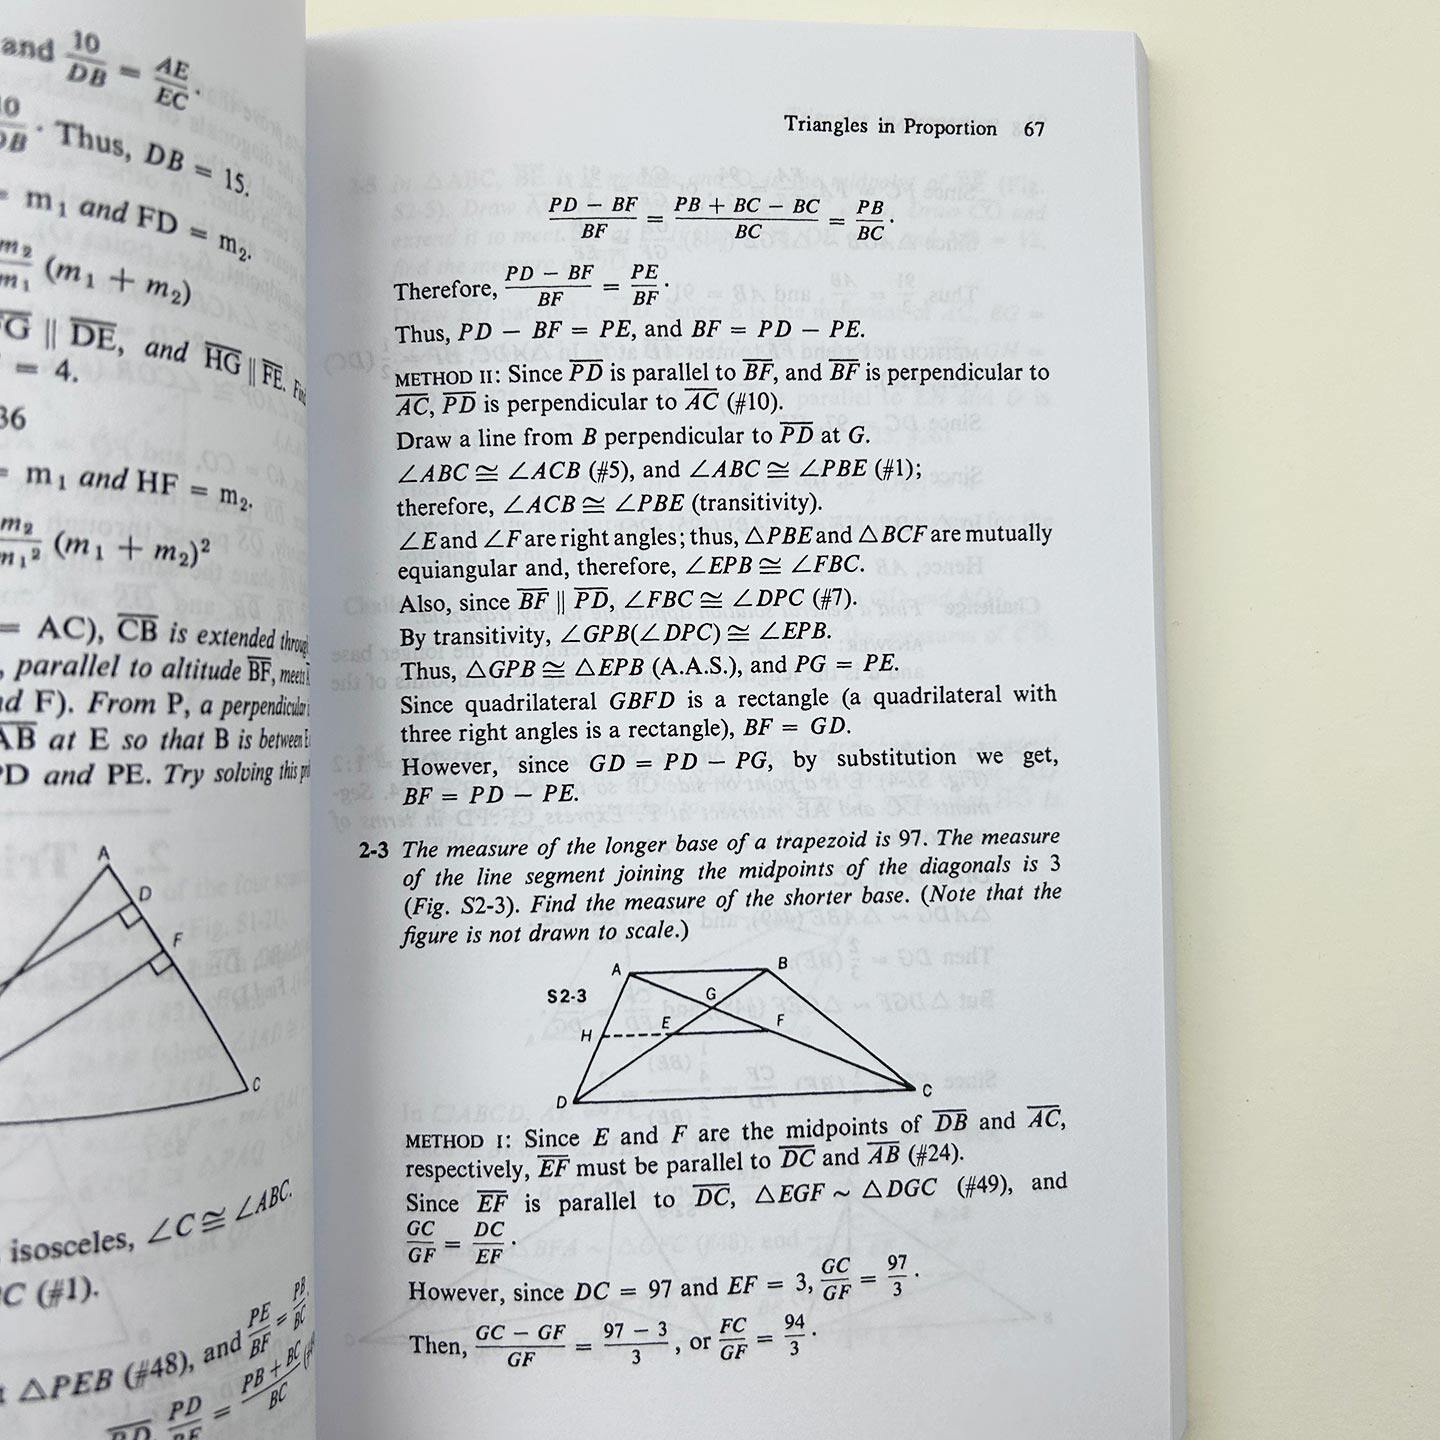 and 10/DB = AE/EC.
Thus, DB = 15.
= m₁ and FD = m₂.
m₂/m₁ (m₁ + m₂)
FG ∥ DE, and HG ∥ FE.
= 4.
36
= m₁ and HF = m₂.
m₂/m₁² (m₁ + m₂)²
= AC), CB is extended through
, parallel to altitude BF, meets
and F). From P, a perpendicular
AB at E so that B is between E
PD and PE. Try solving this
A
D
F
C
isosceles, ∠C ≅ ∠ABC.
(#1).
△PEB (#48), and PE/BF = PB/BC.
PD/BF = PB + BC/BC
Triangles in Proportion 67
PD − BF/BF = PB + BC − BC/BC = PB/BC.
Therefore, PD − BF/BF = PE/BF.
Thus, PD − BF = PE, and BF = PD − PE.
METHOD II: Since PD is parallel to BF, and BF is perpendicular to
AC, PD is perpendicular to AC (#10).
Draw a line from B perpendicular to PD at G.
∠ABC ≅ ∠ACB (#5), and ∠ABC ≅ ∠PBE (#1);
therefore, ∠ACB ≅ ∠PBE (transitivity).
∠E and ∠F are right angles; thus, △PBE and △BCF are mutually
equiangular and, therefore, ∠EPB ≅ ∠FBC.
Also, since BF ∥ PD, ∠FBC ≅ ∠DPC (#7).
By transitivity, ∠GPB(∠DPC) ≅ ∠EPB.
Thus, △GPB ≅ △EPB (A.A.S.), and PG = PE.
Since quadrilateral GBFD is a rectangle (a quadrilateral with
three right angles is a rectangle), BF = GD.
However, since GD = PD − PG, by substitution we get,
BF = PD − PE.
2-3 The measure of the longer base of a trapezoid is 97. The measure
of the line segment joining the midpoints of the diagonals is 3
(Fig. S2-3). Find the measure of the shorter base. (Note that the
figure is not drawn to scale.)
A B
S2-3
G
H E F
D C
METHOD I: Since E and F are the midpoints of DB and AC,
respectively, EF must be parallel to DC and AB (#24).
Since EF is parallel to DC, △EGF ~ △DGC (#49), and
GC/GF = DC/EF.
However, since DC = 97 and EF = 3, GC/GF = 97/3.
Then, GC − GF/GF = 97 − 3/3, or FC/GF = 94/3.